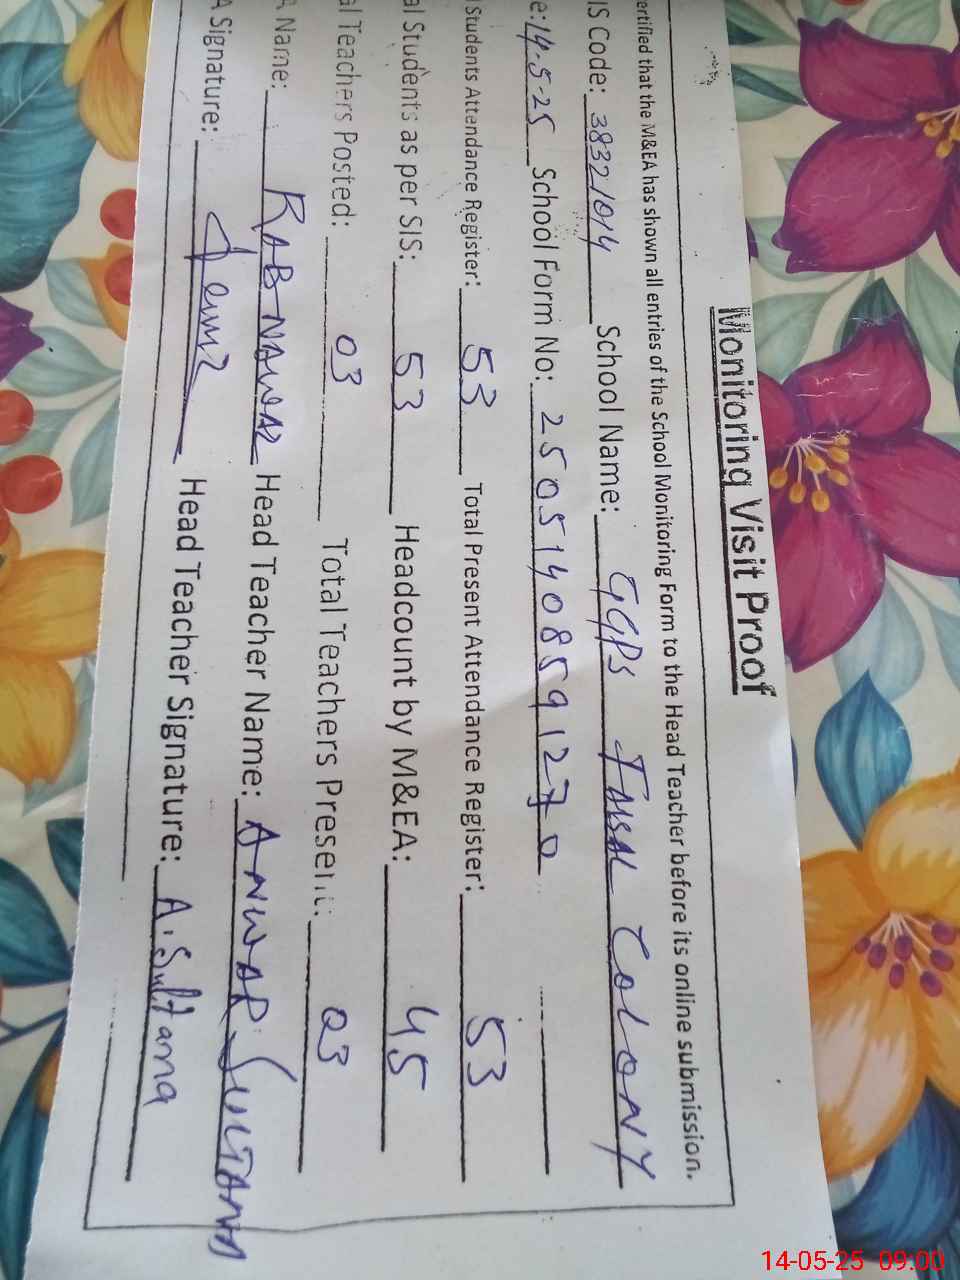 Monitoring Visit Proof
ertified that the M&EA has shown all entries of the School Monitoring Form to the Head Teacher before its online submission.
IS Code: 38321014 School Name: GGPS FAISAL COLONY
e: 14-5-25 School Form No: 25051408591270
l Students Attendance Register: 53 Total Present Attendance Register: 53
al Students as per SIS: 53 Headcount by M&EA: 45
al Teachers Posted: 03 Total Teachers Present: 03
A Name: RAB NAWAZ Head Teacher Name: ANWAR SULTANA
A Signature: Head Teacher Signature: A. Sultana
14-05-25 09:00